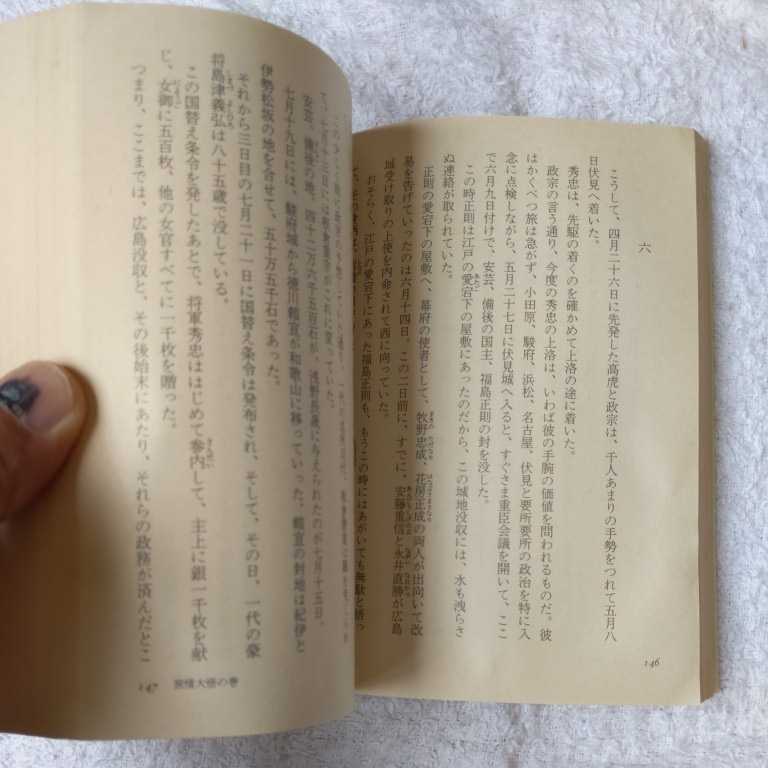 六
こうして、四月二十六日に先発した高虎と政宗は、千人あまりの手勢をつれて五月八
日伏見へ着いた。
秀忠は、先駆の着くのを確かめて上洛の途に着いた。
政宗の言う通り、今度の秀忠の上洛は、いわば彼の手腕の価値を問われるものだ。彼
はかくべつ旅は急がず、小田原、駿府、浜松、名古屋、伏見と要所要所の政治を特に入
念に点検しながら、五月二十七日に伏見城へ入ると、すぐさま重臣会議を開いて、ここ
で六月九日付けで、安芸、備後の国主、福島正則の封を没した。
この時正則は江戸の愛宕下の屋敷にあったのだから、この城地没収には、水も洩らさ
ぬ連絡が取られていた。
正則の愛宕下の屋敷へ、幕府の使者として、牧野忠成、花房正成の両人が出向いて改
易を告げていったのは六月十四日。この二日前に、すでに、安藤重信と永井直勝が広島
城受け取りの上使を内命されて西に向っていた。
おそらく、江戸の愛宕下にあった福島正則も、もうこの時にはあがいても無駄と悟っ
146
安芸、備後の地、四十二万六千五百石が、浅野長晟に与えられたのが七月十五日。
七月十九日には、駿府城から徳川頼宣が和歌山に移っていった。頼宣の封地は紀伊と
伊勢松坂の地を合せて、五十万五千石であった。
それから三日目の七月二十一日に国替え条令は発布され、そして、その日、一代の豪
将島津義弘は八十五歳で没している。
この国替え条令を発したあとで、将軍秀忠ははじめて参内して、主上に銀一千枚を献
じ、女御に五百枚、他の女官すべてに一千枚を贈った。
つまり、ここまでは、広島没収と、その後始末にあたり、それらの政務が済んだとこ
147 旅情大悟の巻